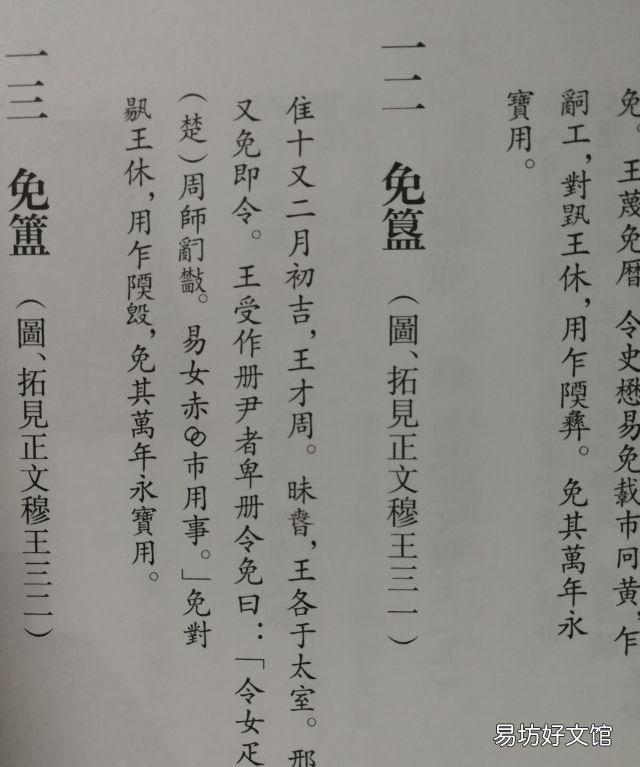 免。王蔑免曆 令史懋易免載市冋黃，乍
嗣工，對訊王休，用乍隩彝。免其萬年永
寶用。
一二 免簋 （圖、拓見正文穆王三一）
隹十又二月初吉，王才周。昧，王各于太室。邢
又免即令。王受作册尹者卑册令免曰：「令女疋
（楚）周師𤔲。易女赤市用事。」免對
王休，用乍隩，免其萬年永寶用。
一三 免簠 （圖、拓見正文穆王三二）
易坊好文馆